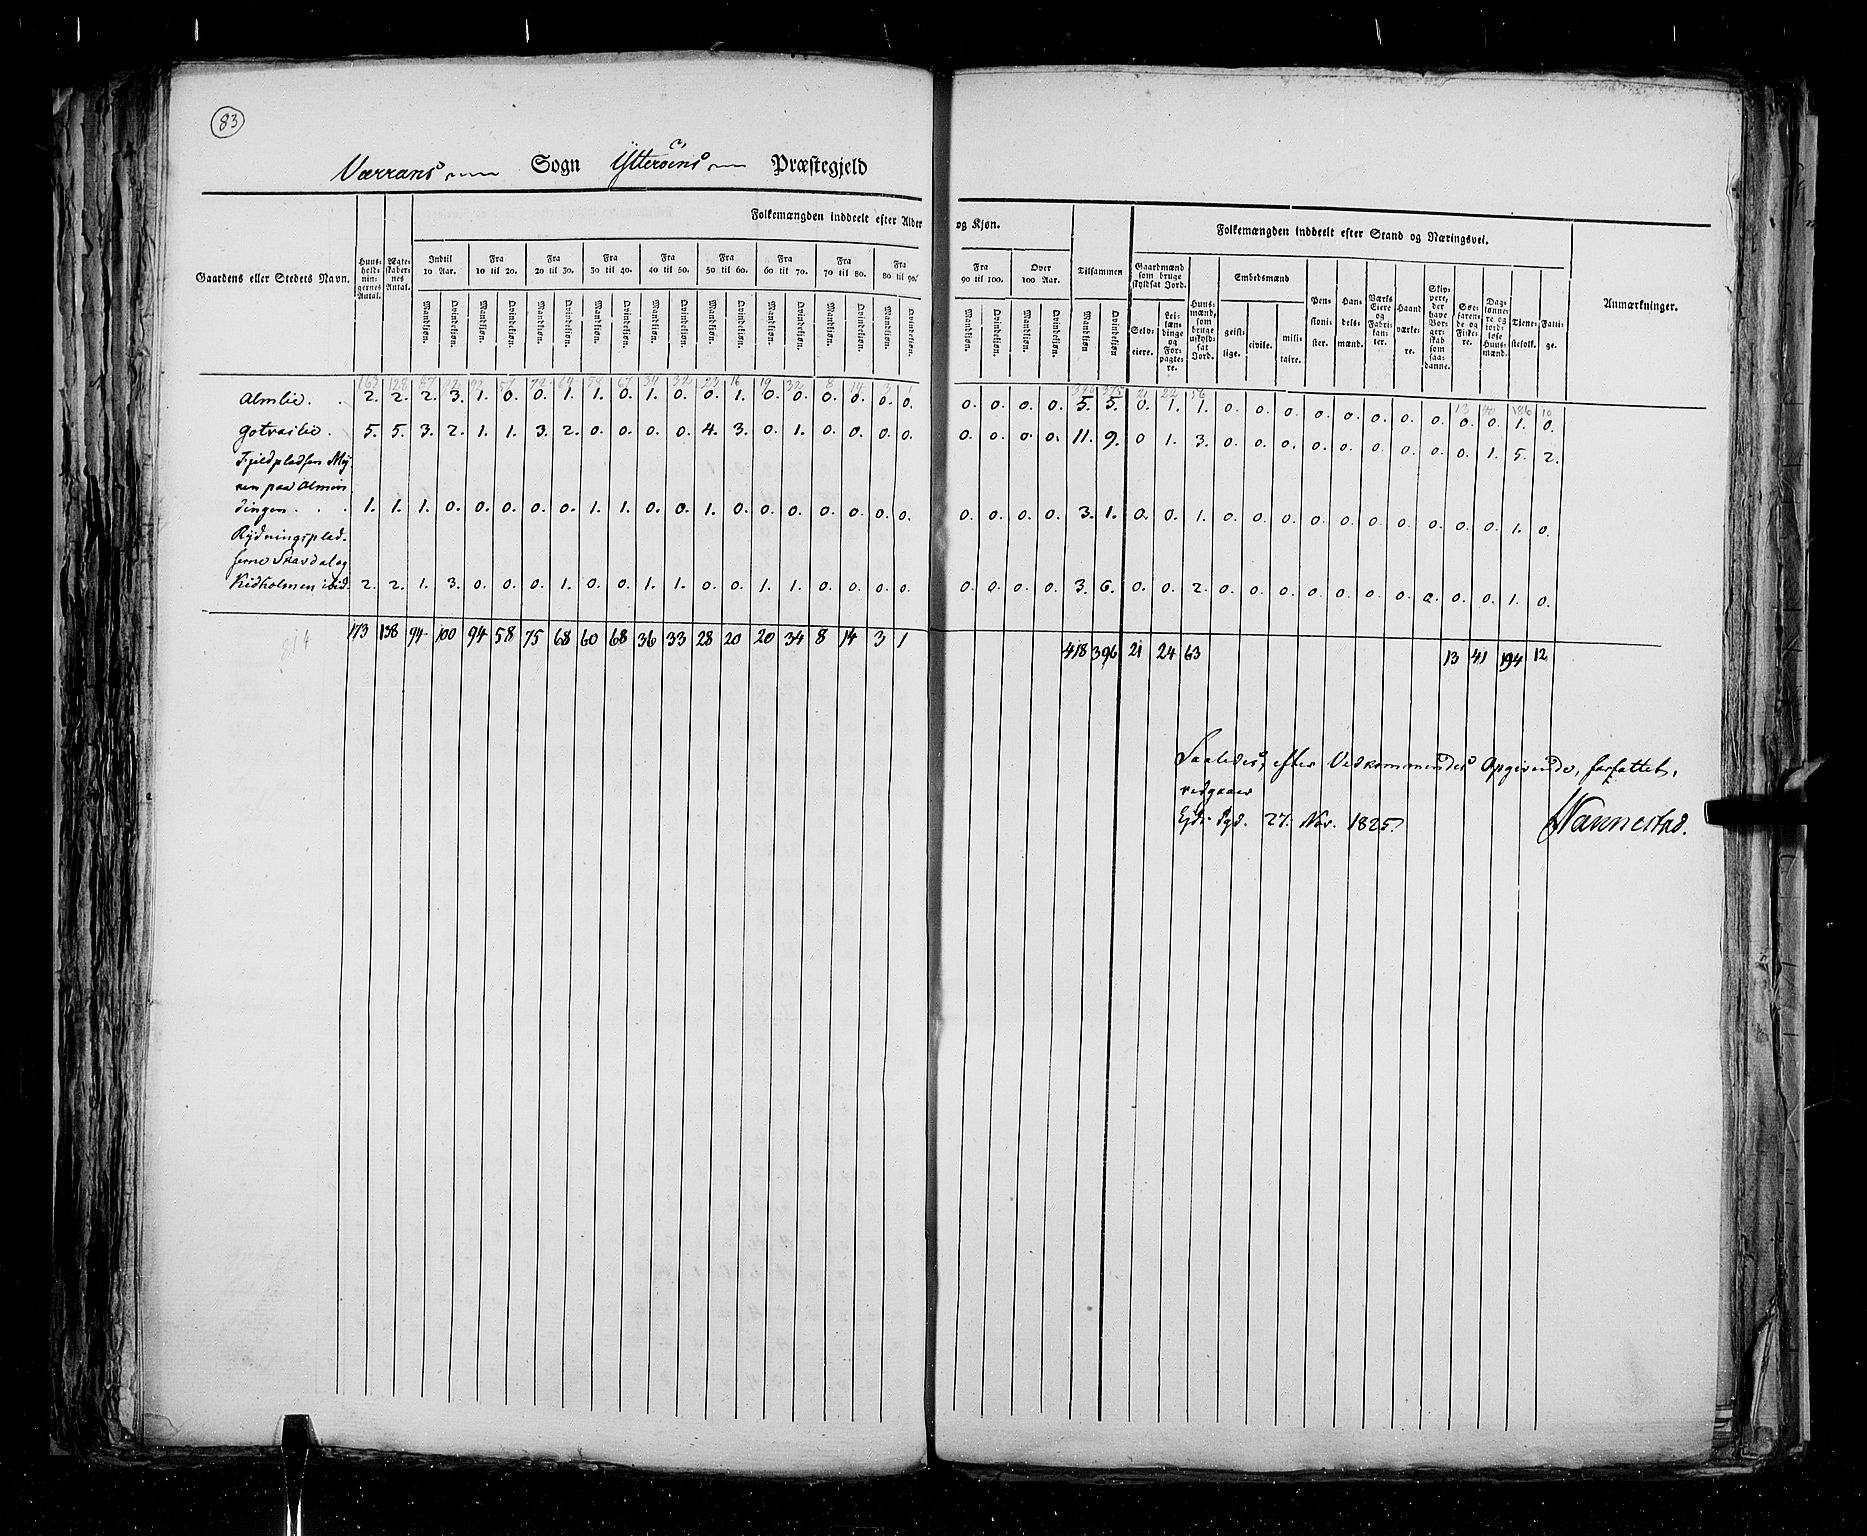 83
Værrans Sogn Ytterøens Præstegjeld
Folkemængden inddeelt efter Alder og Kjøn.
Folkemængden inddeelt efter Stand og Næringsvei.
Gaardens eller Stedets Navn.
Huus-
hold-
nin-
gernes
Antal.
Ægte-
skaber-
nes
Antal.
Indtil
10 Aar.
Fra
10 til 20.
Fra
20 til 30.
Fra
30 til 40.
Fra
40 til 50.
Fra
50 til 60.
Fra
60 til 70.
Fra
70 til 80.
Fra
80 til 90.
Fra
90 til 100.
Over
100 Aar.
Tilsammen
Mandkjøn. Qvindekjøn. Mandkjøn. Qvindekjøn. Mandkjøn. Qvindekjøn. Mandkjøn. Qvindekjøn. Mandkjøn. Qvindekjøn. Mandkjøn. Qvindekjøn. Mandkjøn. Qvindekjøn. Mandkjøn. Qvindekjøn. Mandkjøn. Qvindekjøn. Mandkjøn. Qvindekjøn. Mandkjøn. Qvindekjøn. Mandkjøn Qvindekjøn
Gaardmænd
som bruge
skyldsat Jord.
Selv-
eiere.
Lei-
læn-
dinge
og
For-
pagte-
re.
Huus-
mænd,
som
bruge
uskyld-
sat
Jord.
Embedsmænd
geist-
lige.
civile.
mili-
taire.
Pen-
sioni-
ster.
Han-
dels-
mænd.
Værks
Eiere
og
Fabri-
kan-
ter.
Haand
værke-
re.
Skip-
pere,
der
have
Bor-
ger-
skab
som
saa-
danne.
Søe-
faren-
de og
Fiske-
re.
Dag-
lønne-
re og
jord-
løse
Huus-
mænd.
Tjene-
stefolk.
Fatti-
ge.
Anmærkninger.
163 128 87 92 92 57 72 64 58 67 34 32 23 16 19 32 8 14 3 1 396 375 21 22 56 13 40 186 10
Almlie. . 2. 2. 2. 3. 1. 0. 0. 1. 1. 0. 1. 0. 0. 1. 0. 0. 0. 0. 0. 0. 0. 0. 0. 0. 5. 5. 0. 1. 1. 0. 0. 0. 0. 0. 0. 0. 0. 0. 0. 1. 0.
Gotvaslie . 5. 5. 3. 2. 1. 1. 3. 2. 0. 0. 0. 0. 4. 3. 0. 1. 0. 0. 0. 0. 0. 0. 0. 0. 11. 9. 0 1. 3. 0. 0. 0. 0. 0. 0. 0. 0. 0. 1. 5. 2.
Fjeldpladsen My-
ren paa Almin
dingen . . . 1. 1. 1. 0. 0. 0. 0. 0. 1. 1. 0. 0. 1. 0. 0. 0. 0. 0. 0. 0. 0. 0. 0. 0. 3. 1. 0. 0. 1. 0. 0. 0. 0. 0. 0. 0. 0. 0. 0. 1. 0.
Rydningsplad-
serne Skavdal og
Kidholmen ibid. 2. 2. 1. 3. 0. 0. 0. 1. 0. 0. 1. 1. 0. 0. 1. 1. 0. 0. 0. 0. 0. 0. 0. 0. 3. 6. 0. 0. 2. 0. 0. 0. 0. 0. 0. 0. 0. 0. 0. 1. 0.
814 173 138 94 100 94 58 75 68 60 68 36 33 28 20 20 34 8 14 3 1 418 396 21 24 63 13 41 194 12
Saaledes, efter Vedkommendes Opgivende, forfattet,
vedgaaer
27. Nov. 1825.
Nannestad.